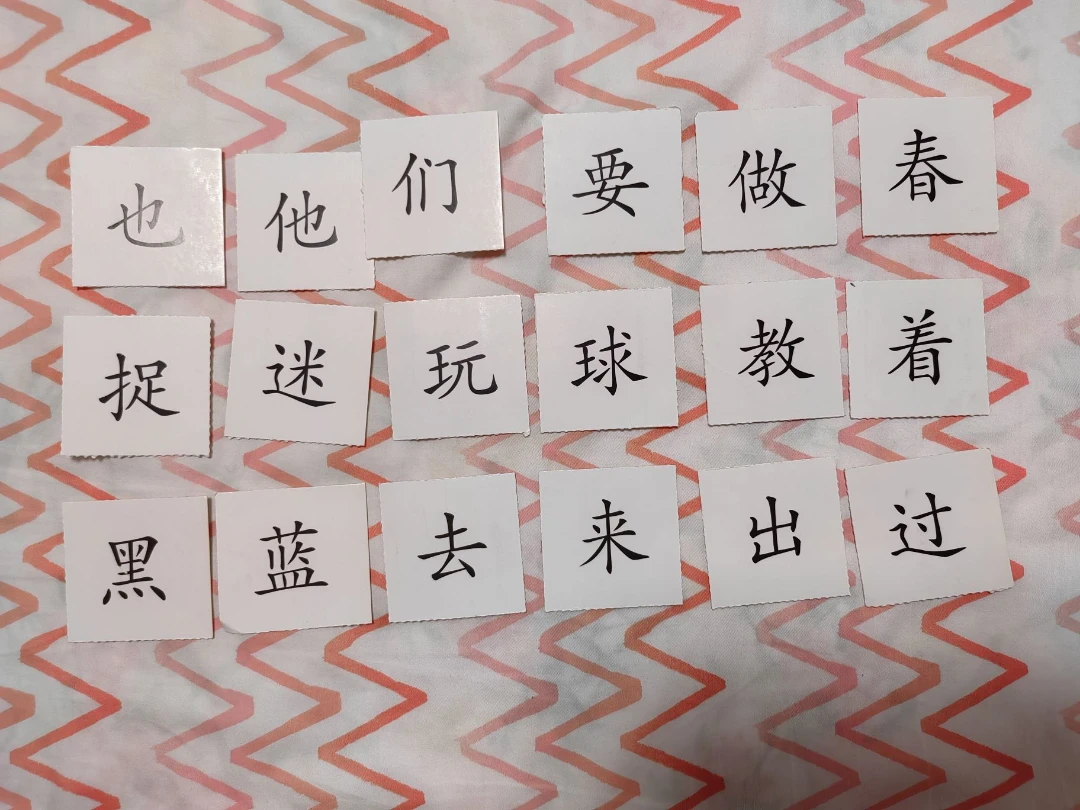 也他们要做春
捉迷玩球教着
黑蓝去来出过